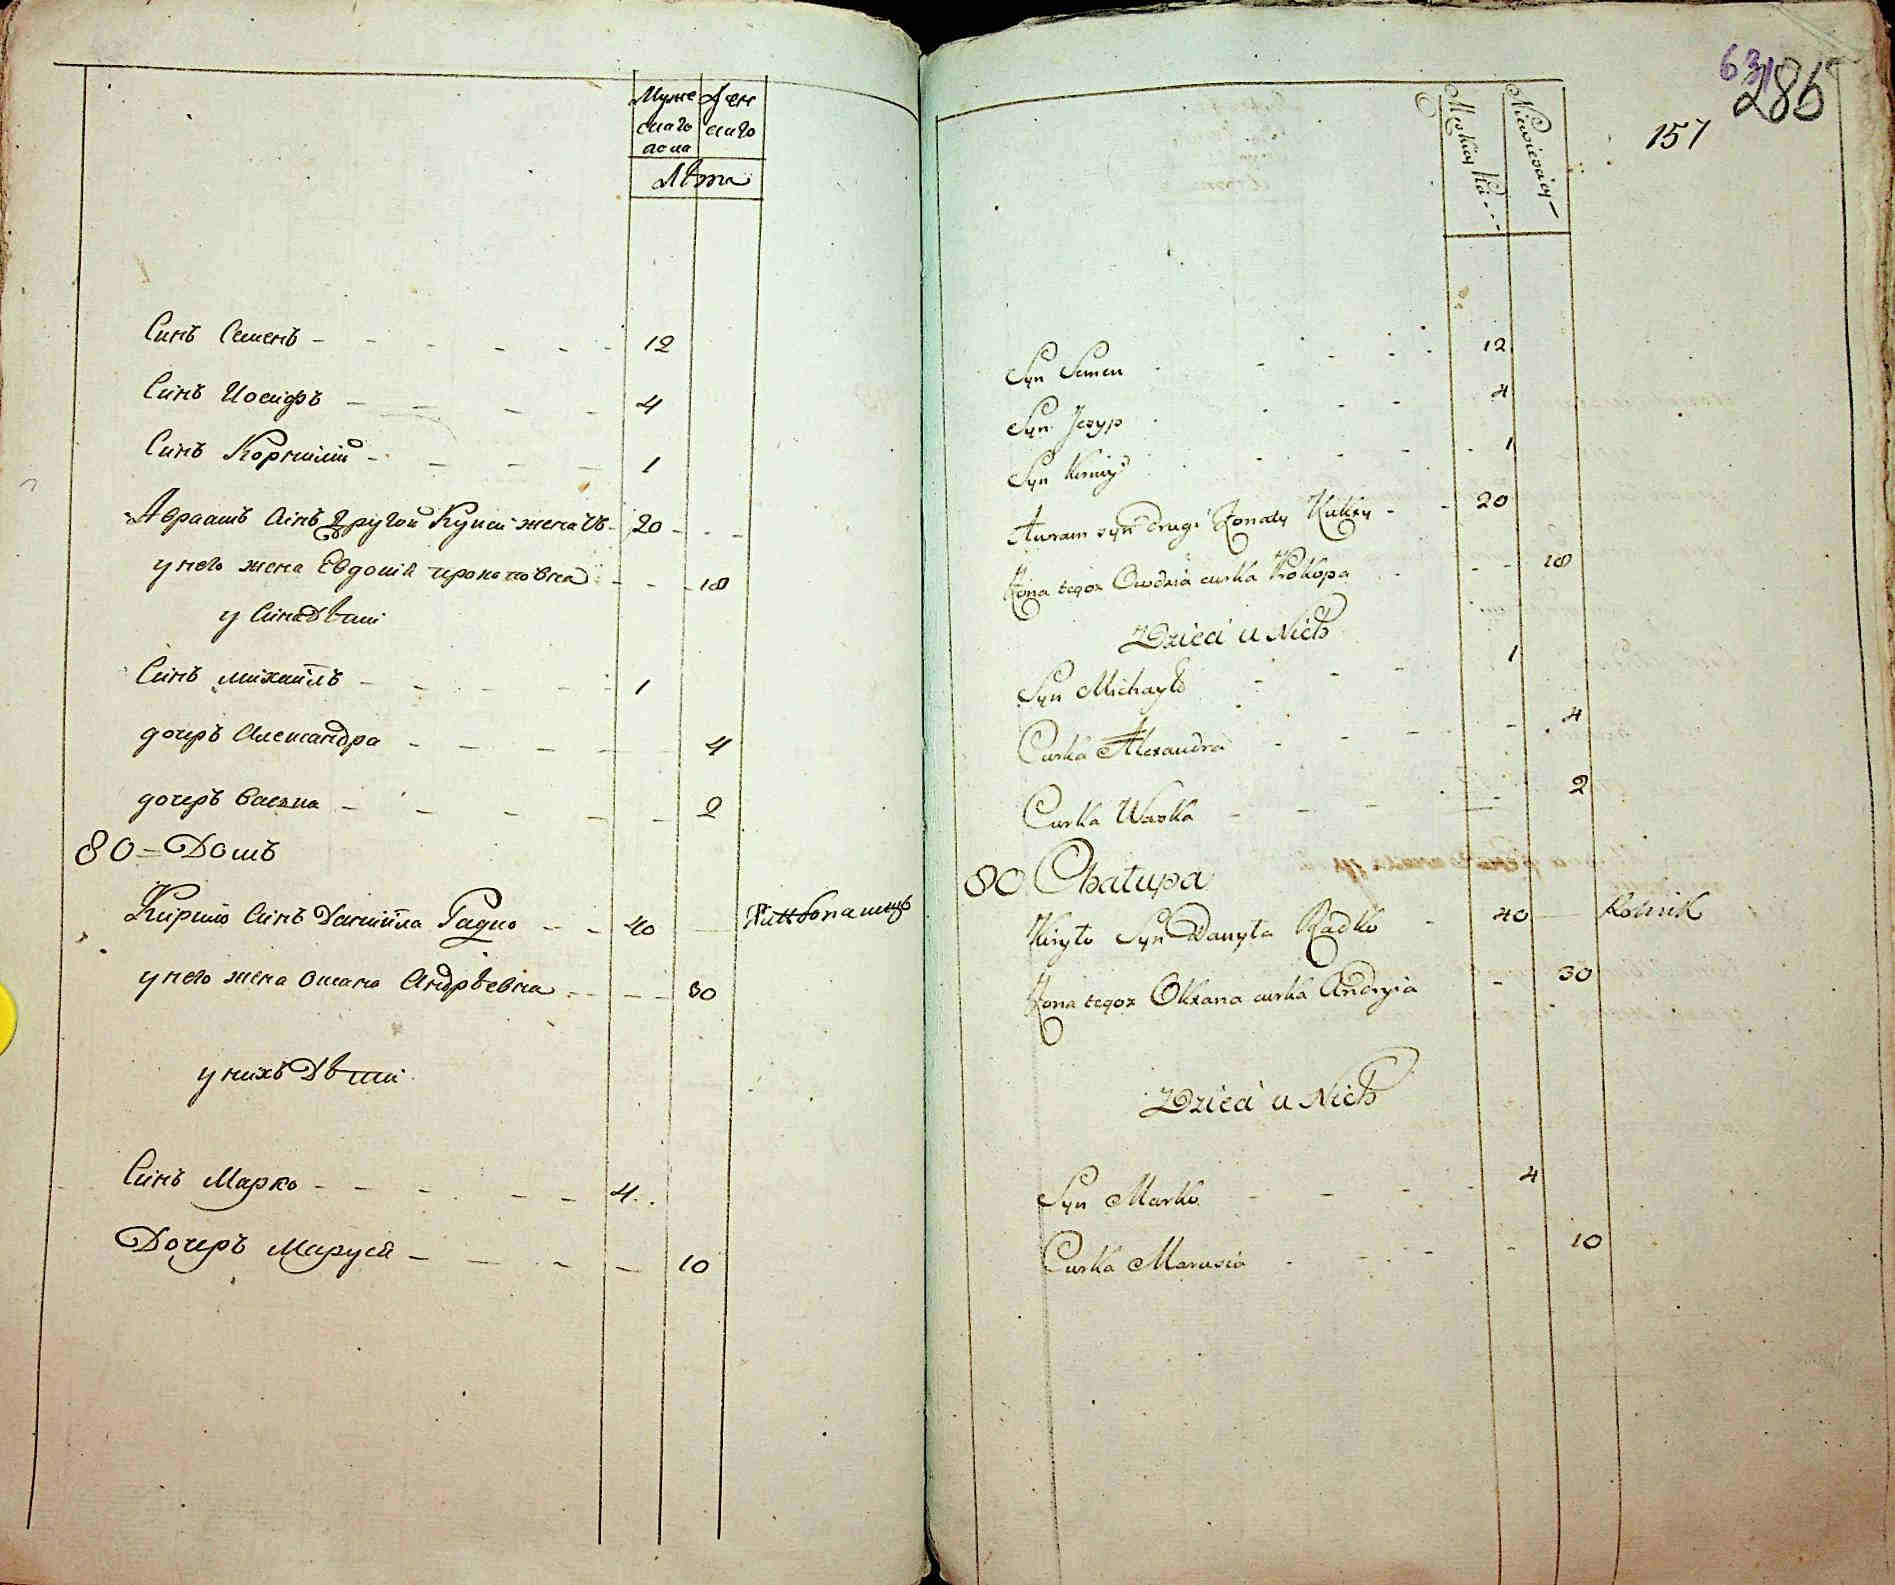 Муже Жен
скаго скаго
пола
Лѣта
Синъ Семенъ - - - - - - 12
Синъ Иосифъ - - - - 4
Синъ Корнилий - - - - 1
Авраамъ Синъ другой жена 20 - - -
у него жена Евдокия прокоповна - - - 18
у Сина Дѣти
Синъ михаилъ - - - - - 1
дочеръ Александра - - - - - 4
дочеръ Васка - - - - - 2
80 = Домъ
Кирило Синъ Данийла Радко - - 40 Хлѣбопашецъ
у него жена Оксана Андрѣевна - - - 30
у нихъ Дѣти
Синъ Марко - - - - - - 4
Дочеръ Маруся - - - - - 10
63 286
157
Męskiey
Niewiesciey
Syn Semen - - - - 12
Syn Jozyp - - - 4
Syn - - - - 1
Awram syn drugi Żonaty Kuksy - - 20
Żona tegoz Owdzia curka Prokopa - - - 18
Dzieci u Nich
Syn Michayło - - - 1
Curka Alexandra - - - - - 4
Curka Waska - - - - - 2
80 Chatupa
Kiryło Syn Danyła Radko - 40 Rolnik
Żona tegoz Oksana curka Andryia - 30
Dzieci u Nich
Syn Marko - - - - 4
Curka Marusia - - - - 10